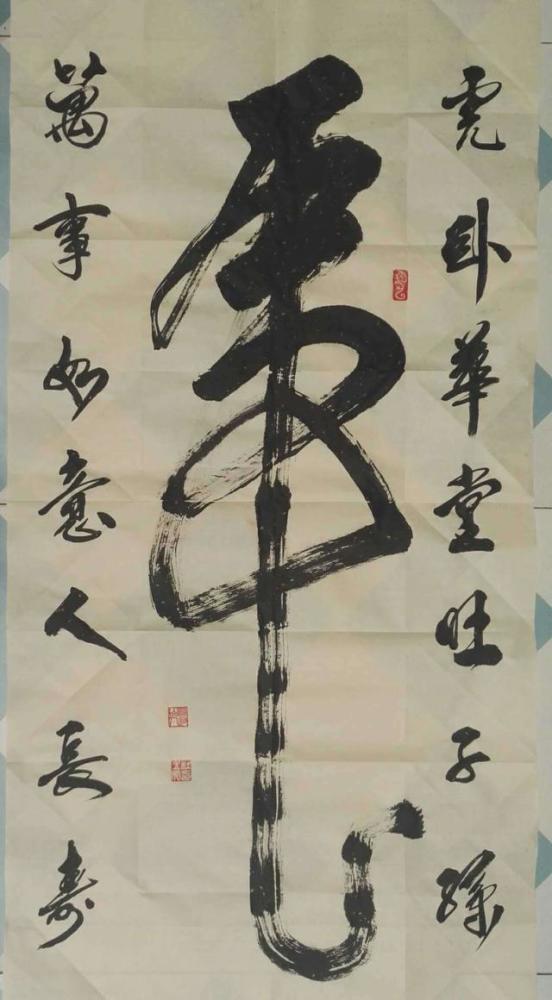 虎卧華堂旺子孫
虎
萬事如意人長壽